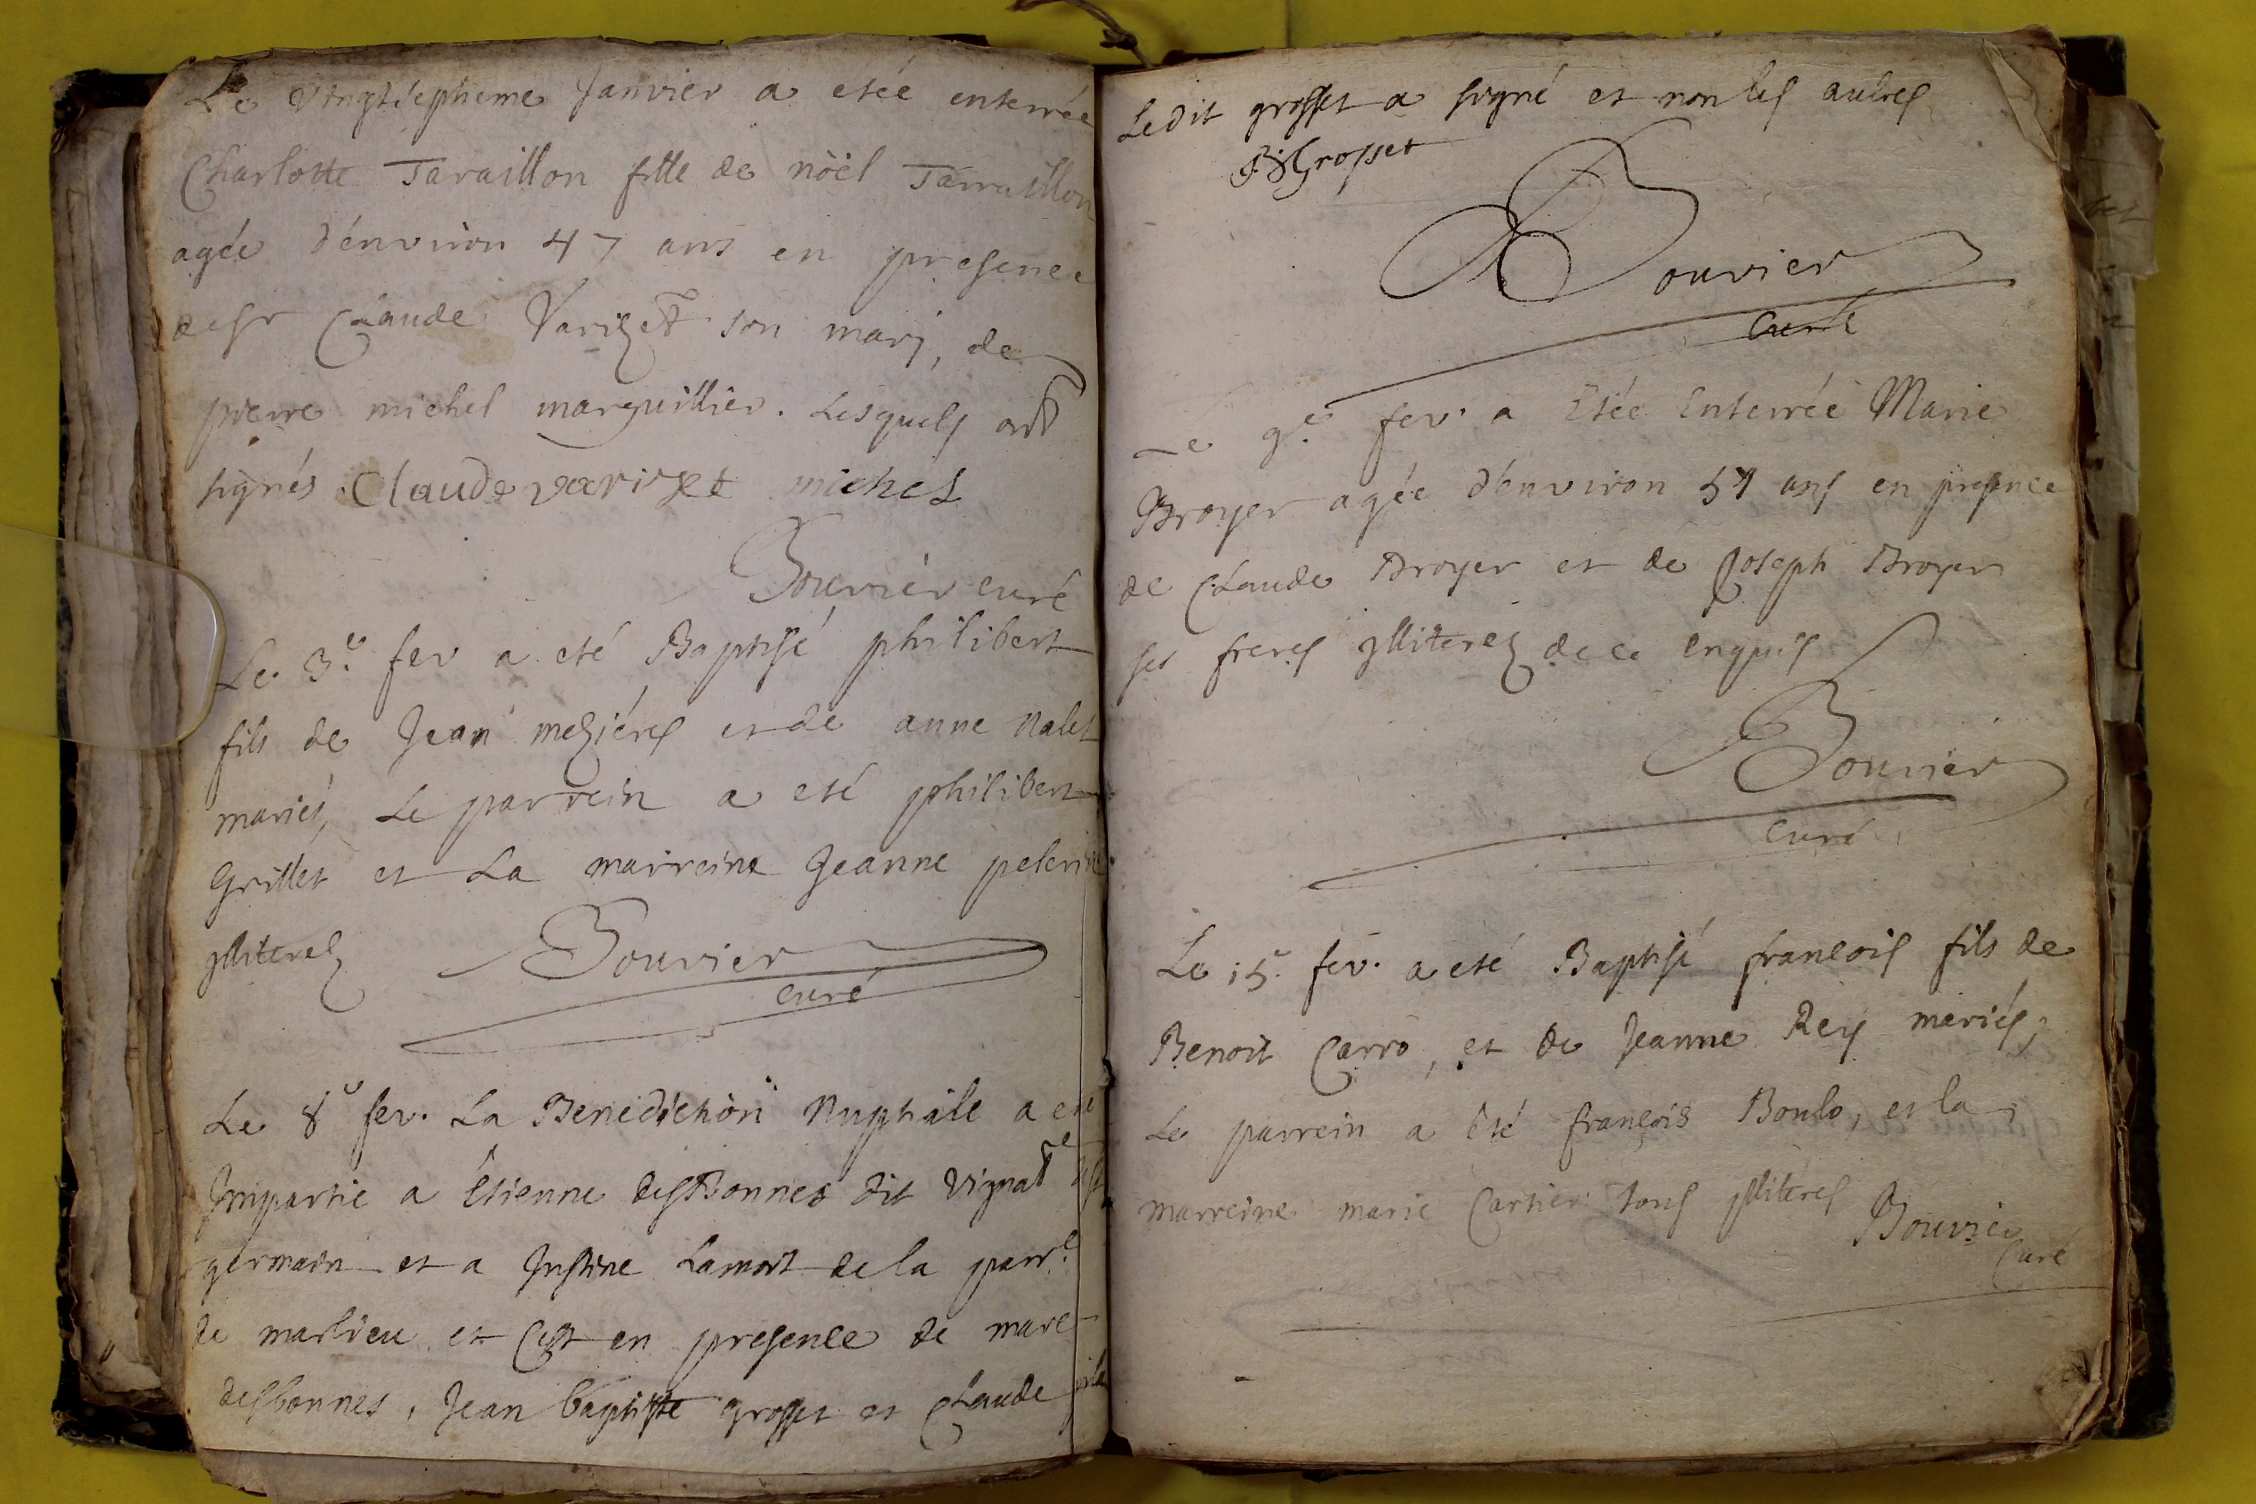 Le vingtsephieme Janvier a etée enterrée
Charlotte Taraillon fille de nöel Tarraillon
agée d'enuiron 47 ans en presence
de sr Claude Varizet son marj, de
pierre michel marguillier. Lesquels ont
signés Claude varizet michel
Bouvier curé
Le 3e fev a eté Baptisé philibert
fils de Jean mezières et de anne Nalet
mariés, Le parrein a eté philibert
Grillet et La marreine Jeanne pelerin
jlliterez Bouvier
curé
Le 8e fev. La Benediction Nuptiale a eté
Impartie a Étienne desBonnes dit Vignat de st
germain et a Justine Lamort de la parre
de marlieu et Cest en presence de marc
desbonnes, Jean baptiste grosset et Claude
Le dit grosset a signé et non les autres
JBGrosset
Bouvier
Curé
Le 9e fev. a Etée Enterrée Marie
Broyer agée d'enuiron 57 ans en presence
de Claude Broyer et de Joseph Broyer
ses freres jlliterez de ce enquis
Bouvier
curé
Le 15e fev. a eté Baptisé francois fils de
Benoit Carro, et de Jeanne Rey mariés,
Le parrein a êté françois Boulo, et la
marreine marie Cartier tous jlliteres Bouvier
Curé